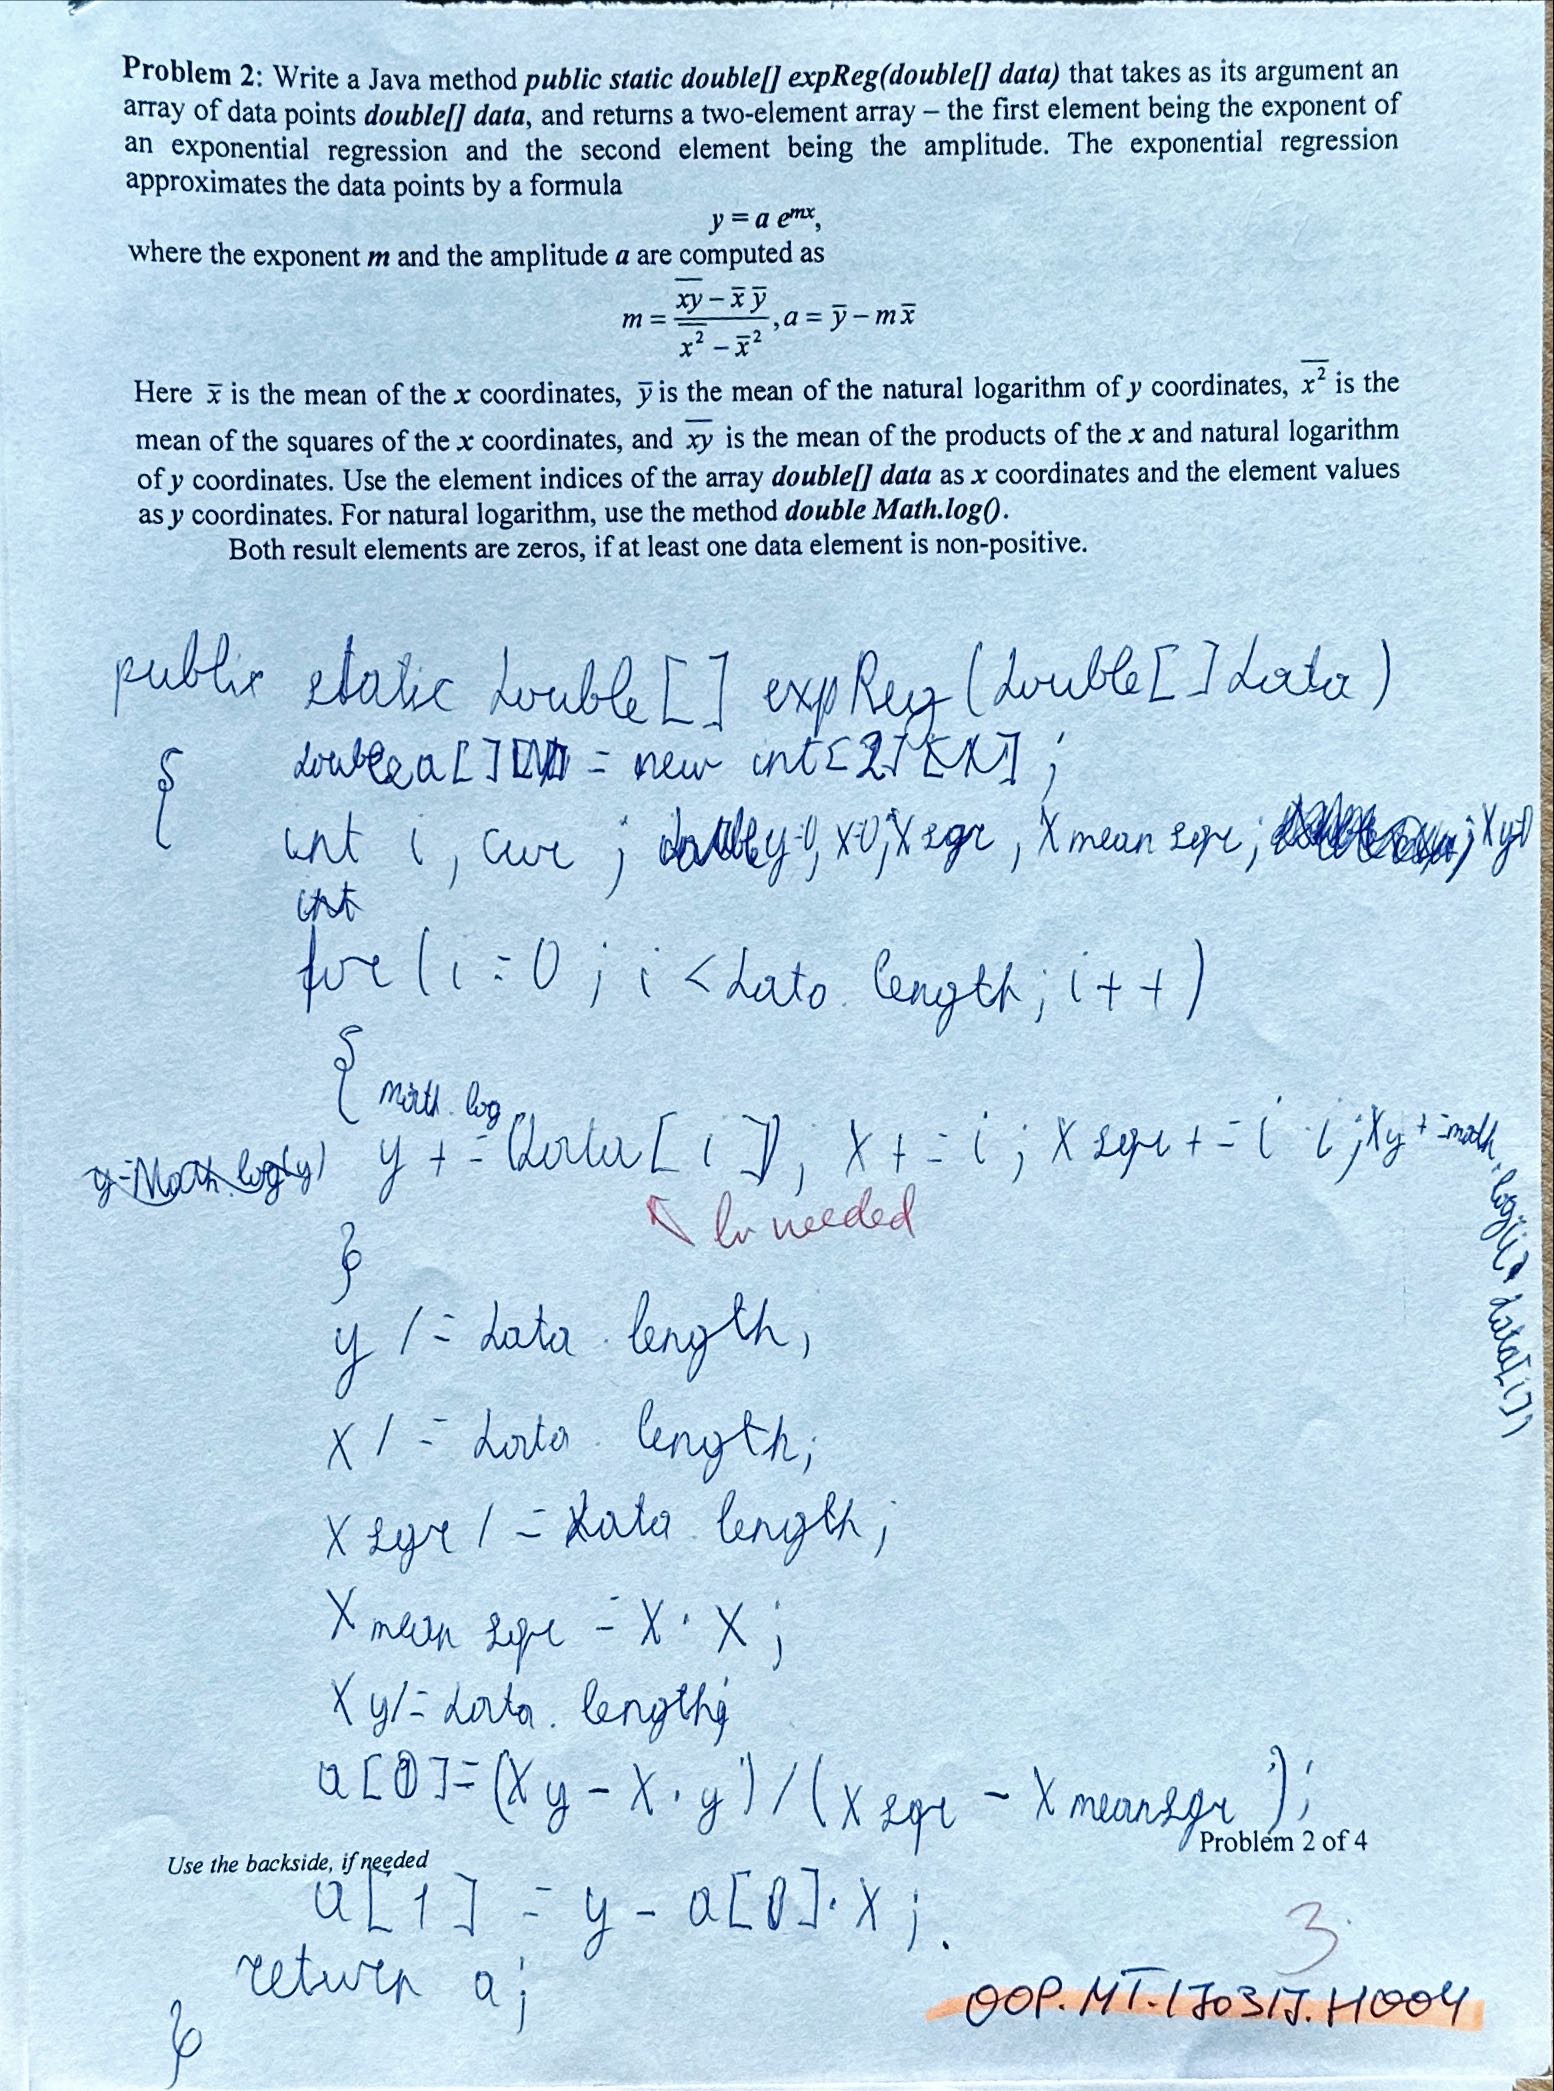 Problem 2: Write a Java method public static double[] expReg(double[] data) that takes as its argument an
array of data points double[] data, and returns a two-element array – the first element being the exponent of
an exponential regression and the second element being the amplitude. The exponential regression
approximates the data points by a formula
y = a e^{mx},
where the exponent m and the amplitude a are computed as
m = (\overline{xy} – x̄ ȳ) / (\overline{x²} – x̄²), a = ȳ – m x̄
Here x̄ is the mean of the x coordinates, ȳ is the mean of the natural logarithm of y coordinates, \overline{x²} is the
mean of the squares of the x coordinates, and \overline{xy} is the mean of the products of the x and natural logarithm
of y coordinates. Use the element indices of the array double[] data as x coordinates and the element values
as y coordinates. For natural logarithm, use the method double Math.log().
Both result elements are zeros, if at least one data element is non-positive.
public static double[] expReg(double[] data)
{ double a[] = new int[2];
int i, cur; double y=0, x=0, Xsqr, Xmean sqr; Xy=0
int
for(i=0; i<data.length; i++)
{
math.log
y += (data[i]); X+=i; Xsqr+=i·i; Xy+=math.log(i·data[i])
y=Math.log(y)
ln needed
}
y /= data.length;
X /= data.length;
Xsqr /= data.length;
Xmean sqr = X·X;
Xy /= data.length;
a[0]=(Xy-X·y)/(Xsqr - Xmeansqr);
Problem 2 of 4
Use the backside, if needed
a[1] = y - a[0]·X;
3
return a;
OOP.MT.170317.H004
}